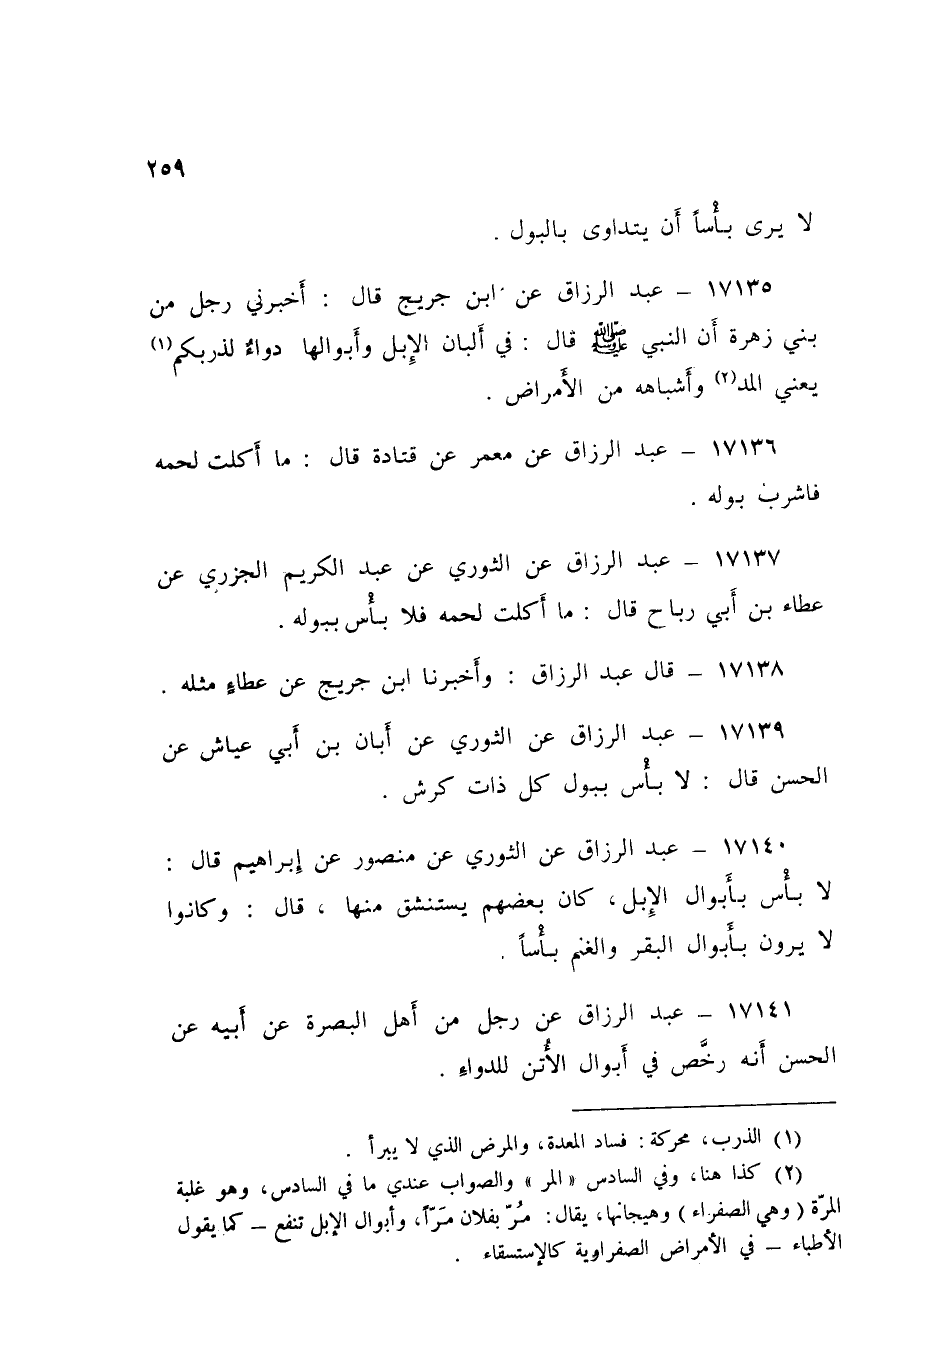 ٢٥٩
لا يرى بأْساً أَن يتداوى بالبول .
١٧١٣٥ – عبد الرزاق عن ابن جريج قال : أَخبرني رجل من
بني زهرة أَن النبي ﷺ قال : في أَلبان الإِبل وأَبوالها دواءٌ لذربكم(١)
يعني المد(٢) وأَشباهه من الأَمراض .
١٧١٣٦ – عبد الرزاق عن معمر عن قتادة قال : ما أَكلت لحمه
فاشرب بوله .
١٧١٣٧ – عبد الرزاق عن الثوري عن عبد الكريم الجزري عن
عطاء بن أَبي رباح قال : ما أَكلت لحمه فلا بأْس ببوله .
١٧١٣٨ – قال عبد الرزاق : وأَخبرنا ابن جريج عن عطاءٍ مثله .
١٧١٣٩ – عبد الرزاق عن الثوري عن أَبان بن أَبي عياش عن
الحسن قال : لا بأْس ببول كل ذات كرش .
١٧١٤٠ – عبد الرزاق عن الثوري عن منصور عن إِبراهيم قال :
لا بأْس بأَبوال الإِبل ، كان بعضهم يستنشق منها ، قال : وكانوا
لا يرون بأَبوال البقر والغنم بأْساً .
١٧١٤١ – عبد الرزاق عن رجل من أَهل البصرة عن أَبيه عن
الحسن أَنه رخَّص في أَبوال الأُتن للدواءِ .
(١) الذرب، محركة : فساد المعدة، والمرض الذي لا يبرأ .
(٢) كذا هنا، وفي السادس «المر» والصواب عندي ما في السادس، وهو غلبة
المرّة (وهي الصفراء) وهيجانها، يقال : مُرّ بفلان مَرّاً، وأبوال الإبل تنفع – كما يقول
الأطباء – في الأمراض الصفراوية كالإستسقاء .